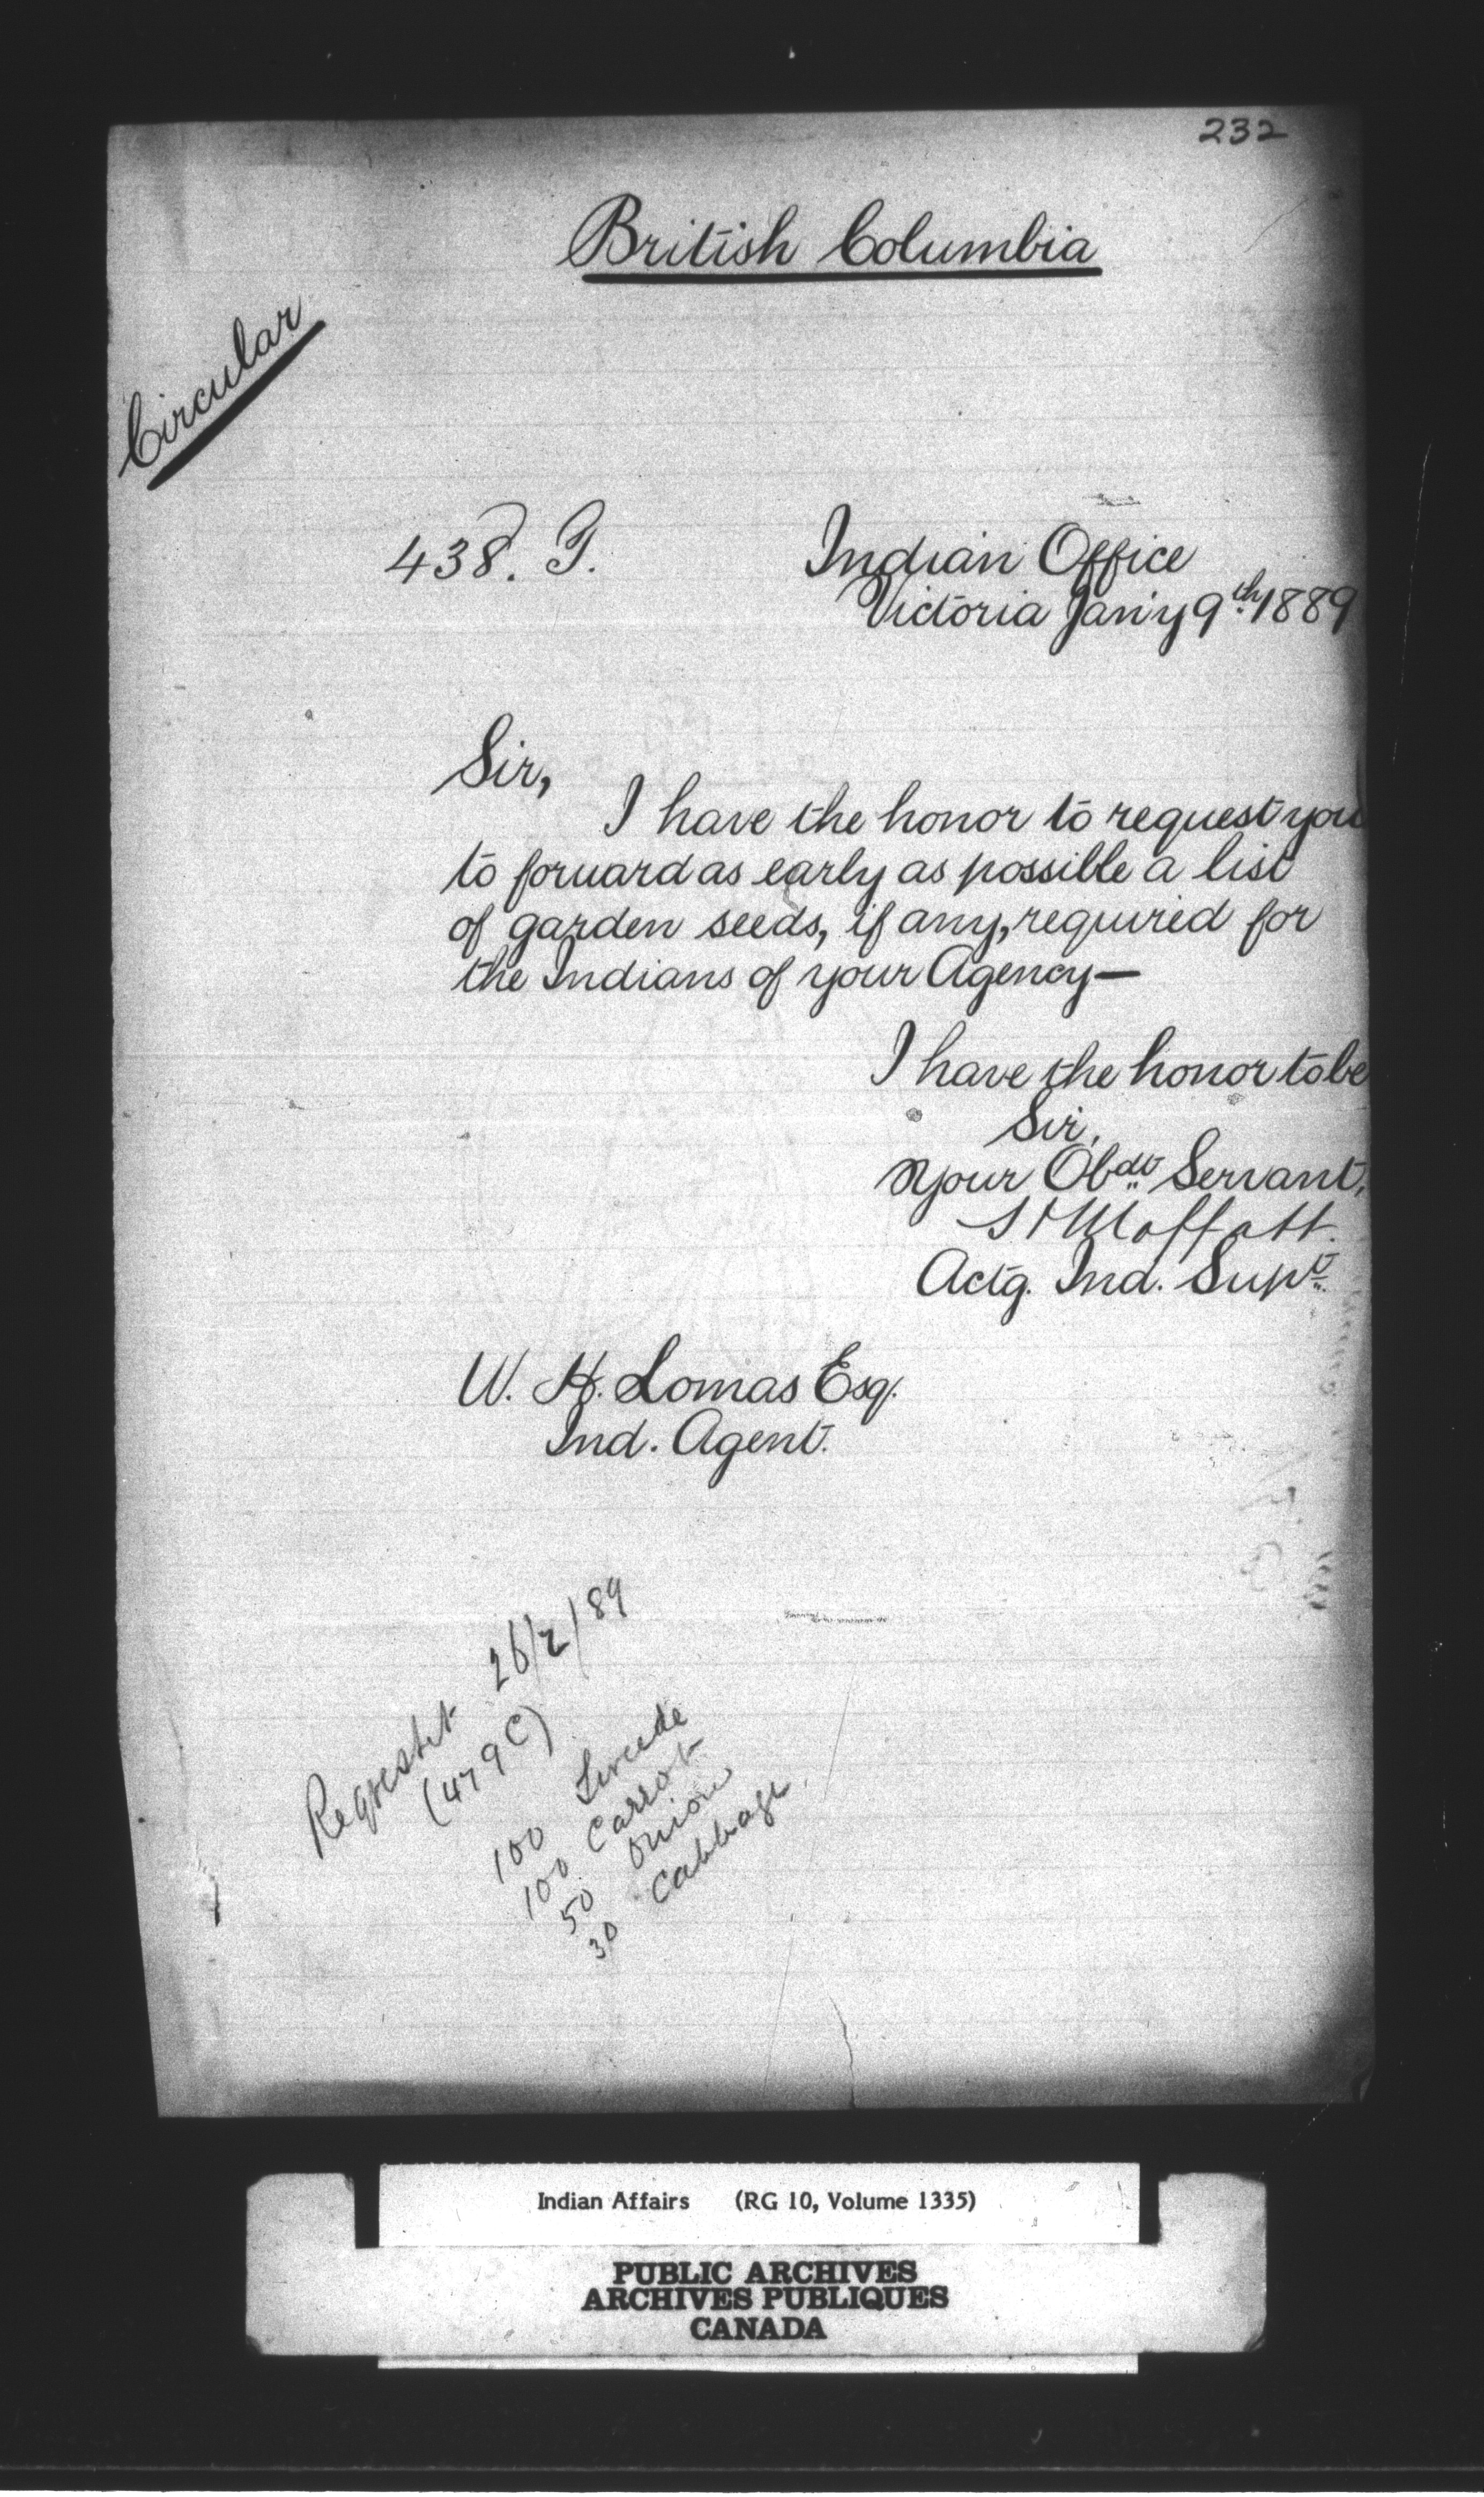 232
British Columbia
Circular
438. G.
Indian Office
Victoria Jan'y 9th 1889
Sir,
I have the honor to request you
to forward as early as possible a list
of garden seeds, if any, required for
the Indians of your Agency—
I have the honor to be
Sir,
Your Obdt Servant,
Moffatt.
Actg. Ind. Supt
W. H. Lomas Esq.
Ind. Agent.
26/2/89
(479 C)
100 Swede
100 Carrot
50 Onion
30 Cabbage
Indian Affairs (RG 10, Volume 1335)
PUBLIC ARCHIVES
ARCHIVES PUBLIQUES
CANADA